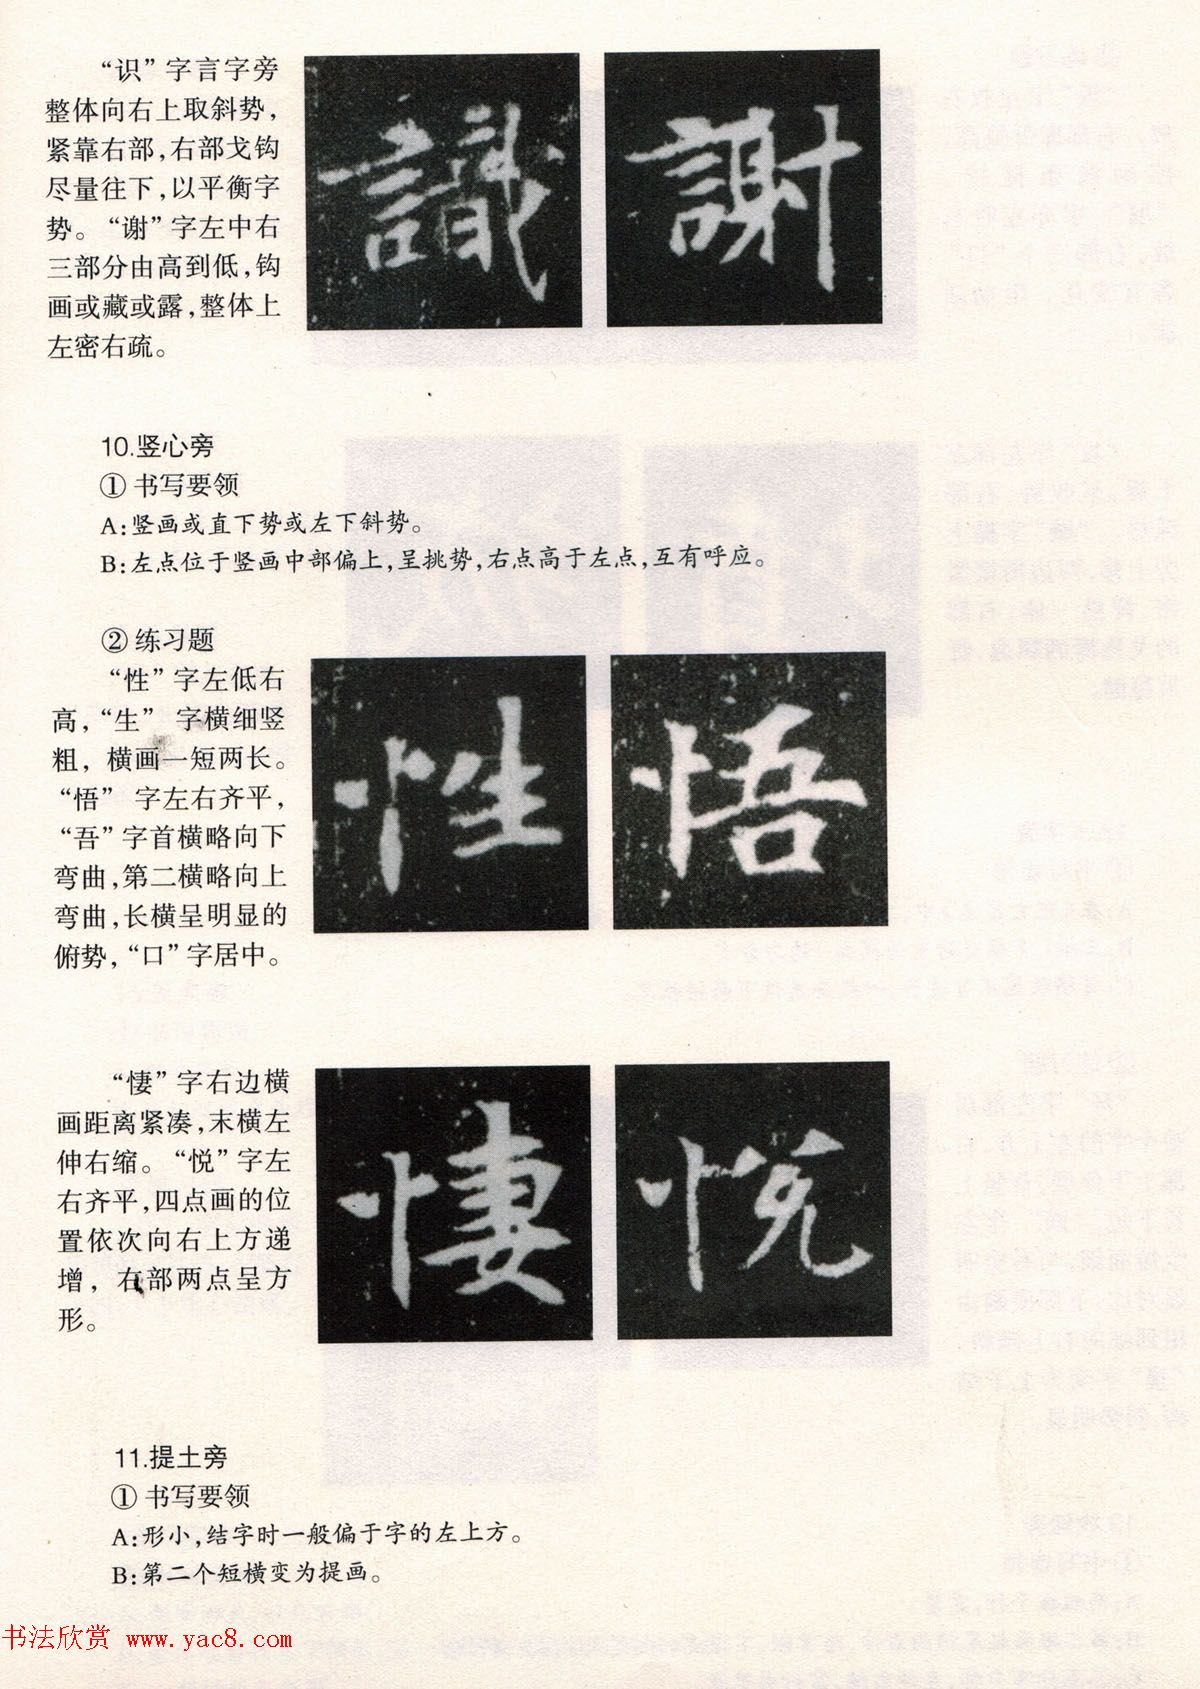 “识”字言字旁
整体向右上取斜势，
紧靠右部，右部戈钩
尽量往下，以平衡字
势。“谢”字左中右
三部分由高到低，钩
画或藏或露，整体上
左密右疏。
識 謝
10.竖心旁
① 书写要领
A:竖画或直下势或左下斜势。
B:左点位于竖画中部偏上，呈挑势，右点高于左点，互有呼应。
② 练习题
“性”字左低右
高，“生” 字横细竖
粗，横画一短两长。
“悟” 字左右齐平，
“吾”字首横略向下
弯曲，第二横略向上
弯曲，长横呈明显的
俯势，“口”字居中。
性 悟
“悽”字右边横
画距离紧凑，末横左
伸右缩。“悦”字左
右齐平，四点画的位
置依次向右上方递
增，右部两点呈方
形。
悽 悦
11.提土旁
① 书写要领
A:形小，结字时一般偏于字的左上方。
B:第二个短横变为提画。
书法欣赏 www.yac8.com